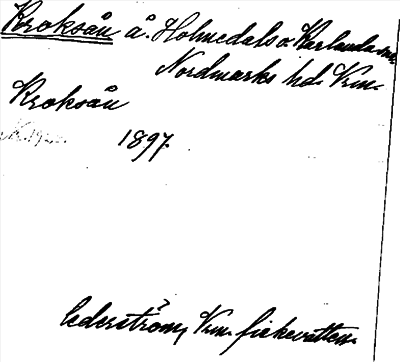 Kroksån å. Holmedals o. Karlanda snr
Nordmarks hd. Vrm.
Kroksån
1897.
?
Cederström, Vrm. fiskevatten.